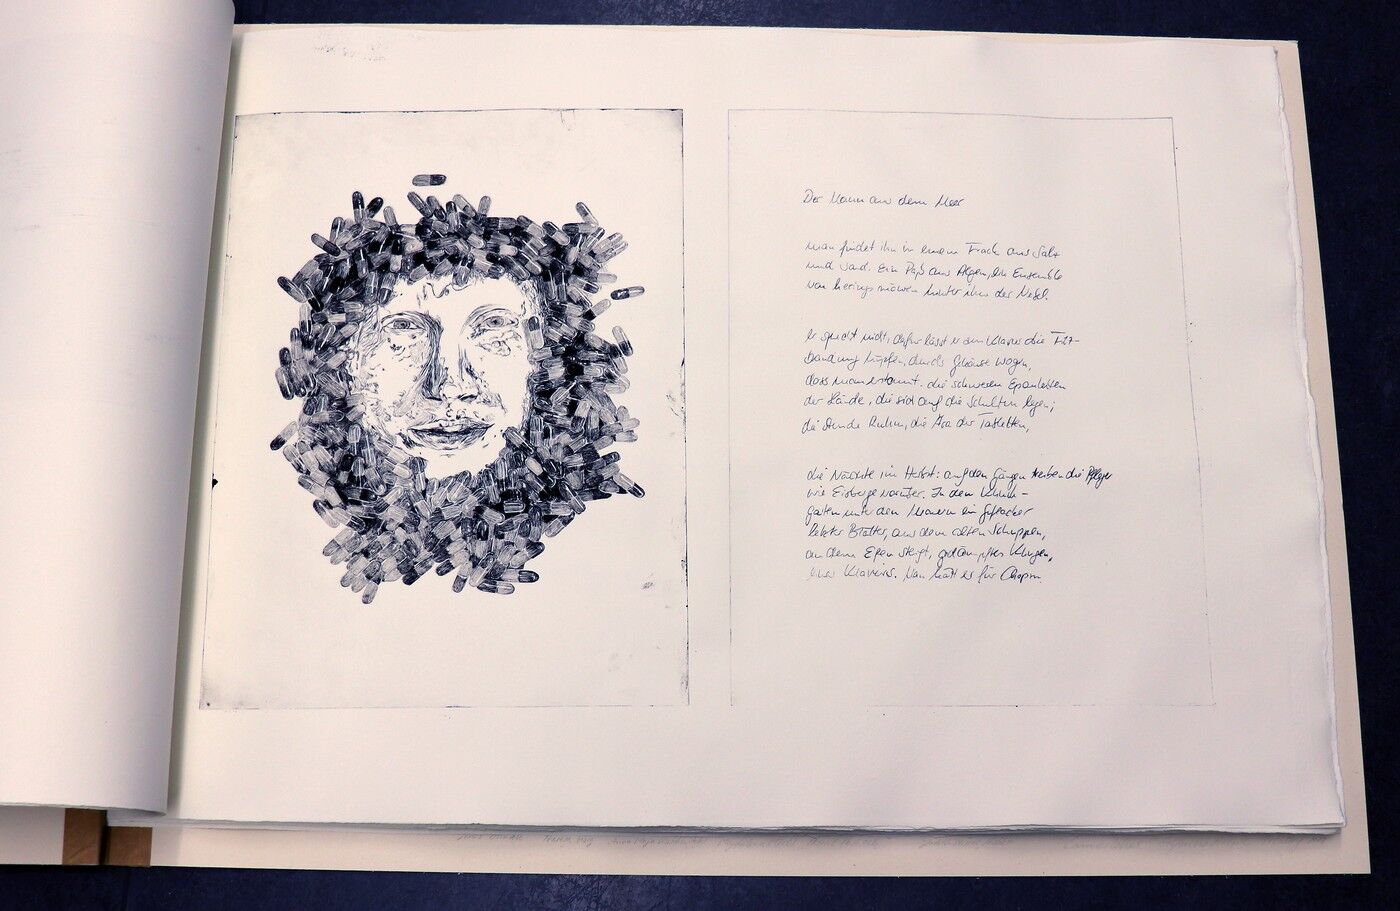 Der Mann aus dem Meer
man findet ihn in einem Frack aus Salz
und Sand. Ein Pass aus Algen, ein Ensemble
von Heringsmöwen hinter ihm der Nebel.
er spricht nicht, dafür lässt er am Klavier die
Brandung hüpfen, durchs Gehäuse wogen,
dass man staunt. die schweren Epauletten
der Hände, die sich auf die Schultern legen;
die Stunde Ruhm, die Ära der Tabletten,
die Nächte im Herbst: auf den Gängen treiben die Pfleger
wie Eisberge vorüber. In dem Klinik-
garten unter den Mauern ein Geflacker
letzter Blätter, aus dem alten Schuppen,
an dem Efeu steigt, gedämpftes Klingen,
eines Klaviers. Man hält es für Chopin.